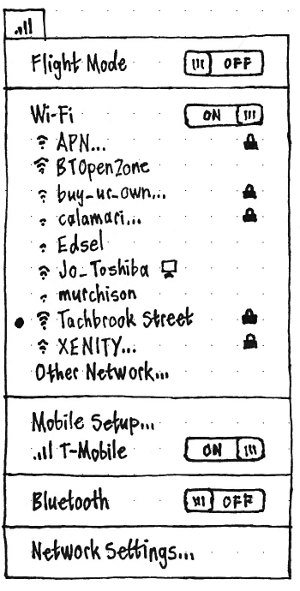 Flight Mode OFF
Wi-Fi ON
APN...
BTOpenZone
buy-ur-own...
calamari...
Edsel
Jo_Toshiba
murchison
Tachbrook Street
XENITY...
Other Network...
Mobile Setup...
T-Mobile ON
Bluetooth OFF
Network Settings...